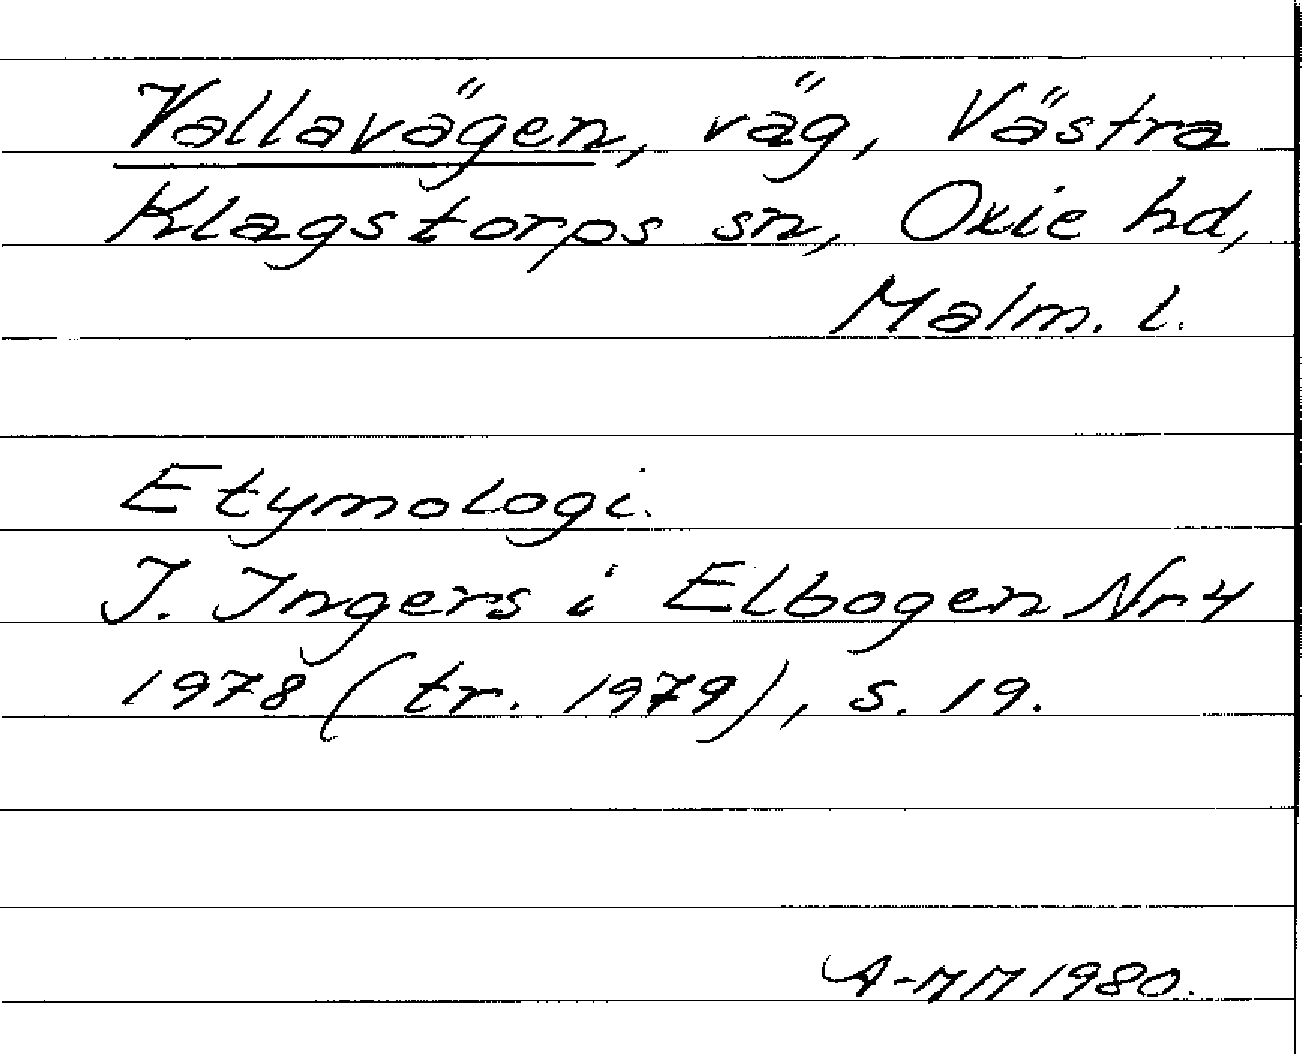 Vallavägen, väg, Västra
Klagstorps sn, Oxie hd,
Malm. l.
Etymologi.
I. Ingers i Elbogen Nr 4
1978 (tr. 1979), s. 19.
A-MM 1980.